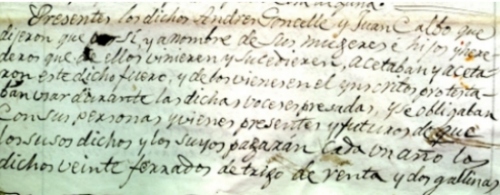 Presentes los dichos Andres Goncelle y Juan Calbo que
dijeron que por sí, y a nombre de sus mugeres e hijos y here
deros que de ellos vinieren y sucedieren, acetaban y aceta
ron este dicho fuero, y de los vienes en el ynscritos protesta
ban usar durante las dichas voces expresadas, y se obligaban
Con sus personas y vienes presentes y futuros de que
los susos dichos y los suyos pagaran Cada un año los
dichos veinte ferrados de trigo de renta y dos gallinas